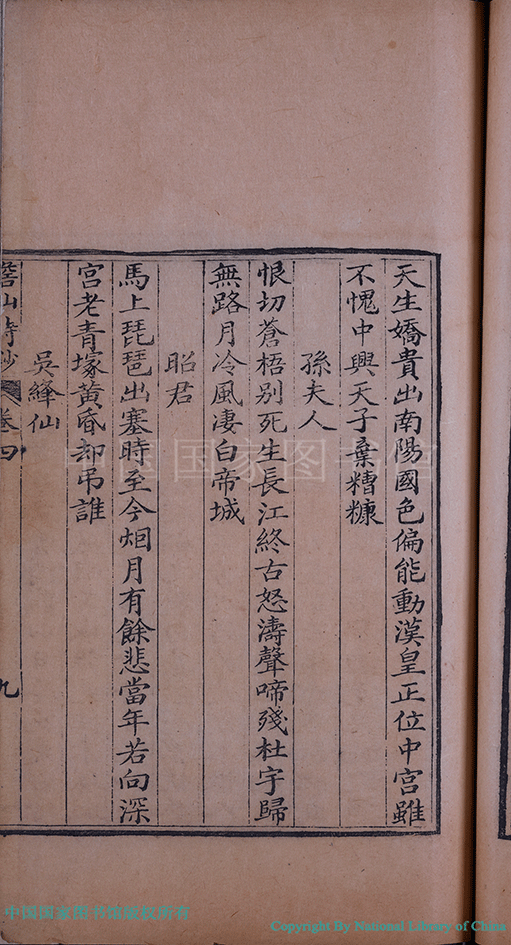 天生嬌貴出南陽國色偏能動漢皇正位中宮雖
不愧中興天子棄糟糠
孫夫人
恨切蒼梧別死生長江終古怒濤聲啼殘杜宇歸
無路月冷風淒白帝城
昭君
馬上琵琶出塞時至今炟月有餘悲當年若向深
宮老青塚黃昏却弔誰
吳絳仙
山詩鈔 卷四 九
中国国家图书馆
中国国家图书馆版权所有
Copyright By National Library of China